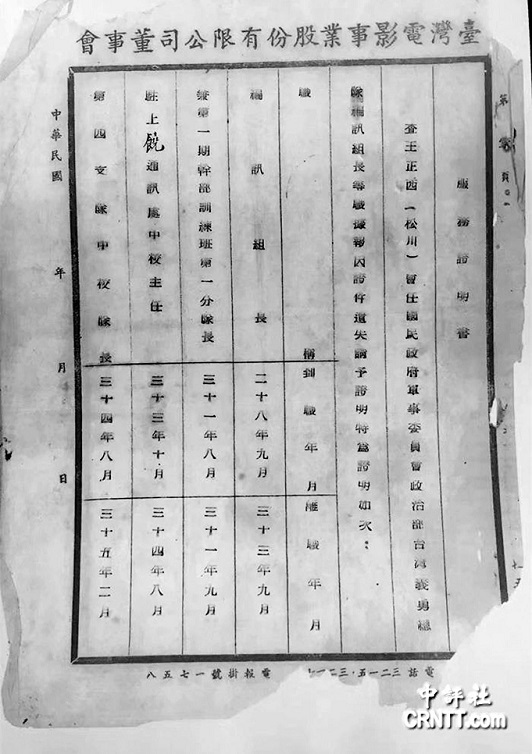 臺灣電影事業股份有限公司董事會
服務證明書
查王正西（松川）曾任國民政府軍事委員會政治部台灣義勇總
隊編訊組長等職據報因證件遺失請予證明特為證明如次：
職稱 到職年月 離職年月
編訊組長 二十八年九月 三十三年九月
兼第一期幹部訓練班第一分隊長 三十一年八月 三十一年九月
駐上饒通訊處中校主任 三十三年十月 三十四年八月
第四支隊中校隊長 三十四年八月 三十五年二月
中華民國 年 月 日
電話 電報掛號一七五八
中評社
CRNTT.com